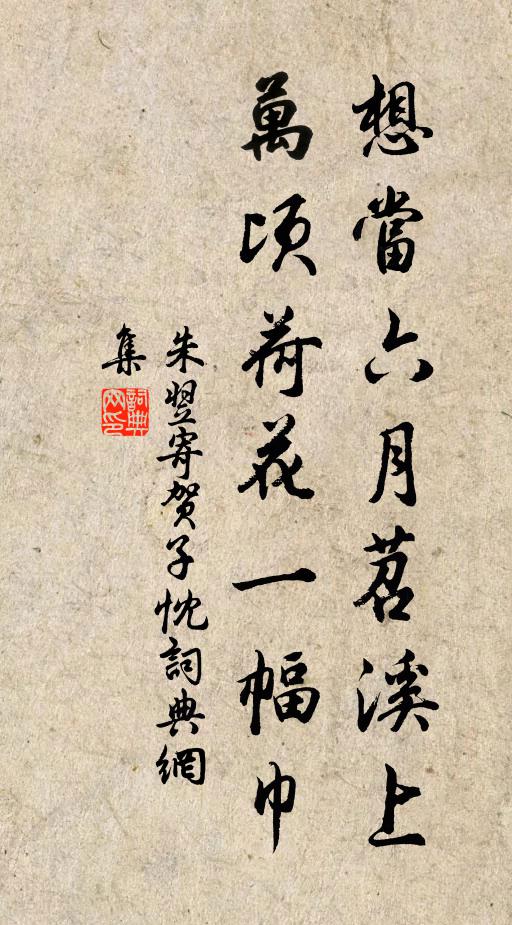 想當六月苕溪上
萬頃荷花一幅巾
朱翌寄賀子忱詞典網
集
詞典
网印